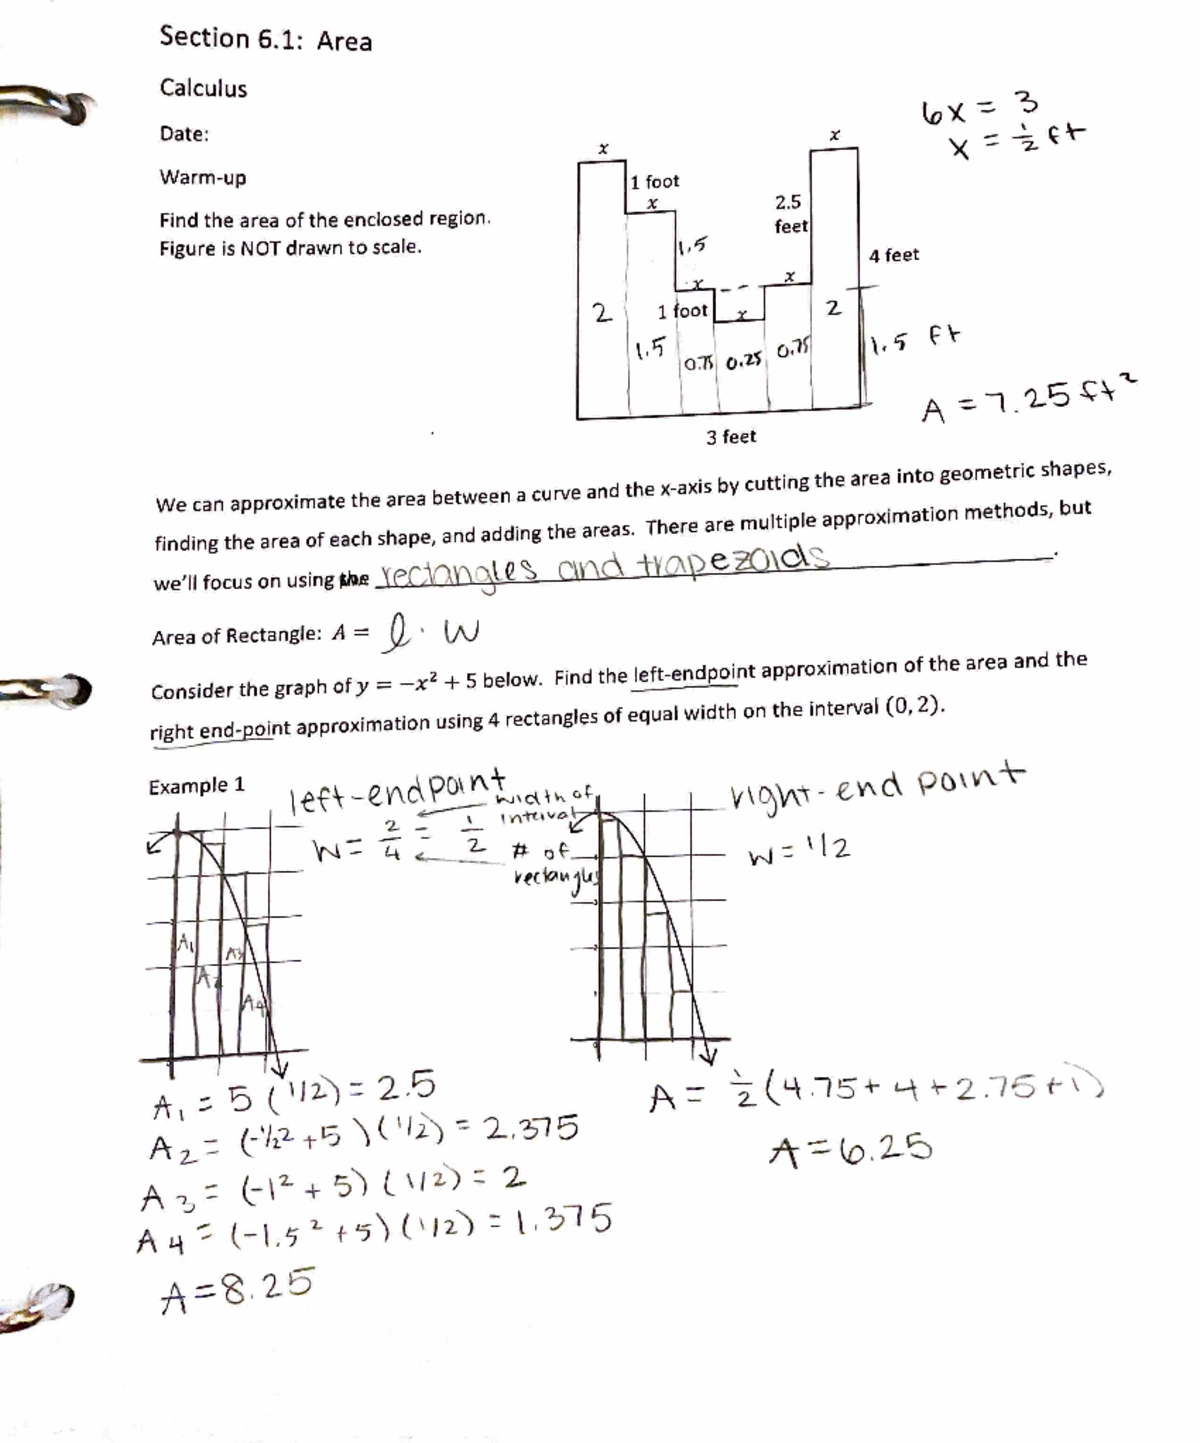 Section 6.1: Area
Calculus
Date:
Warm-up
Find the area of the enclosed region.
Figure is NOT drawn to scale.
6x = 3
x = 1/2 ft
x
x
1 foot
x
2.5
feet
1.5
4 feet
x
x
2
1 foot
x
2
1.5
0.75
0.25
0.75
1.5 ft
A = 7.25 ft²
3 feet
We can approximate the area between a curve and the x-axis by cutting the area into geometric shapes,
finding the area of each shape, and adding the areas. There are multiple approximation methods, but
we'll focus on using the rectangles and trapezoids.
Area of Rectangle: A = l · w
Consider the graph of y = −x² + 5 below. Find the left-endpoint approximation of the area and the
right end-point approximation using 4 rectangles of equal width on the interval (0, 2).
Example 1
left-endpoint
width of
interval
W = 2/4 = 1/2
# of
rectangles
right-end point
W = 1/2
A1
A2
A3
A4
A1 = 5 (1/2) = 2.5
A2 = (-1/2² + 5)(1/2) = 2.375
A3 = (-1² + 5)(1/2) = 2
A4 = (-1.5² + 5)(1/2) = 1.375
A = 8.25
A = 1/2 (4.75 + 4 + 2.75 + 1)
A = 6.25